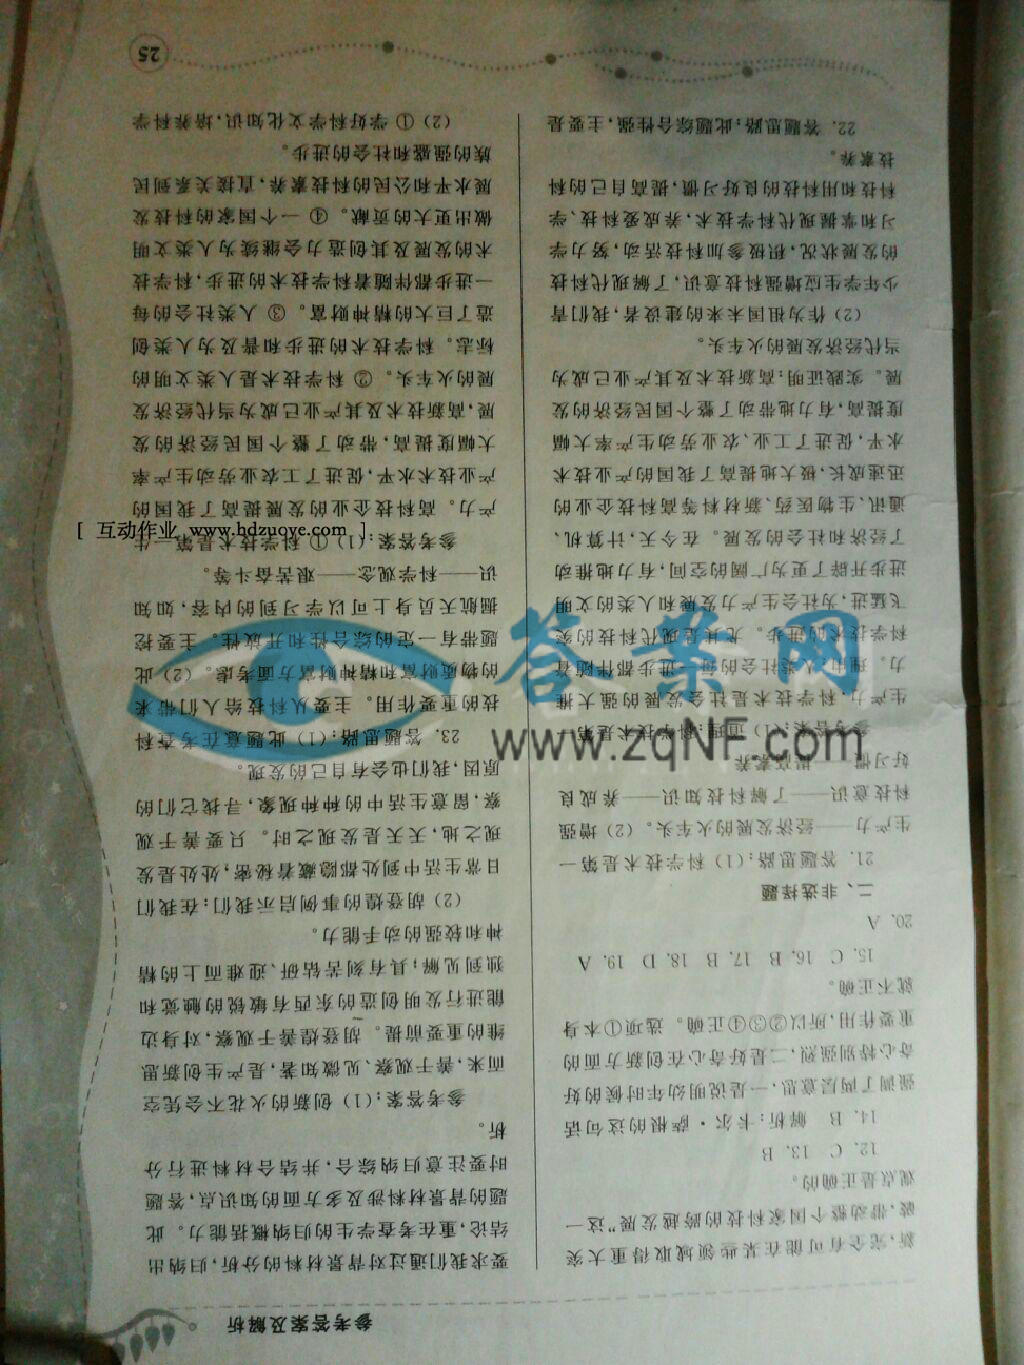 参考答案及解析
新,完全有可能在某些领域取得重大突
破,带动整个国家科技的跨越发展”这一
观点是正确的。
12. C 13. B
14. B 解析:卡尔·萨根的这句话
强调了两层意思,一是说明幼年时候的好
奇心特别强烈,二是好奇心在创新方面的
重要作用,所以②③④正确。选项①本身
就不正确。
15. C 16. B 17. B 18. D 19. A
20. A
二、非选择题
21. 答题思路:(1) 科学技术是第一
生产力——经济发展的火车头。(2) 增强
科技意识——了解科技知识——养成良
好习惯——提高素养
参考答案:(1) 道理:科学技术是第一
生产力,科学技术是社会发展的强大推
力。现代人类社会的每一进步都伴随着
科学技术的进步。尤其是现代科技的突
飞猛进,为社会生产力发展和人类的文明
进步开辟了更为广阔的空间,有力地推动
了经济和社会的发展。在今天,计算机、
通讯、生物医药、新材料等高科技企业的
迅速成长,极大地提高了我国的产业技术
水平,促进了工业、农业劳动生产率大幅
度提高,有力地带动了整个国民经济的发
展。实践证明:高新技术及其产业已成为
当代经济发展的火车头。
(2) 作为祖国未来的建设者,我们青
少年学生应增强科技意识,了解现代科技
的发展状况,积极参加科技活动,努力学
习和掌握现代科学技术,养成爱科技、学
科技和用科技的良好习惯,提高自己的科
技素养。
22. 答题思路:此题综合性强,主要是
要求我们通过对背景材料的分析,归纳出
结论,重在考查学生的归纳概括能力。此
题的背景材料涉及多方面的知识点,答题
时要注意归纳综合,并结合材料进行分
析。
参考答案:(1) 创新的火花不会凭空
而来,善于观察、见微知著,是产生创新思
维的重要前提。胡登煌善于观察,对身边
能进行发明创造的东西有敏锐的触觉和
独到见解;具有刻苦钻研、迎难而上的精
神和较强的动手能力。
(2) 胡登煌的事例启示我们:在我们
日常生活中到处都隐藏着秘密,处处是发
现之地,天天是发现之时。只要善于观
察,留意生活中的种种现象,寻找它们的
原因,我们也会有自己的发现。
23. 答题思路:(1) 此题意在考查科
技的重要作用。主要从科技给人们带来
的物质财富和精神财富方面考虑。(2) 此
题带有一定的综合性和开放性。主要挖
掘航天员身上可以学习到的内容,如知
识——科学观念——艰苦奋斗等。
参考答案:(1) ① 科学技术是第一生
产力。高科技企业的发展提高了我国的
产业技术水平,促进了工农业劳动生产率
大幅度提高,带动了整个国民经济的发
展,高新技术及其产业已成为当代经济发
展的火车头。② 科学技术是人类文明的
标志。科学技术的进步和普及为人类创
造了巨大的精神财富。③ 人类社会的每
一进步都伴随着科学技术的进步,科学技
术的发展及其创造力会继续为人类文明
做出更大的贡献。④ 一个国家的科技发
展水平和公民的科技素养,直接关系到民
族的强盛和社会的进步。
(2) ① 学好科学文化知识,培养科学
25
[ 互动作业 www.hdzuoye.com ]
答案网
www.zqNF.com